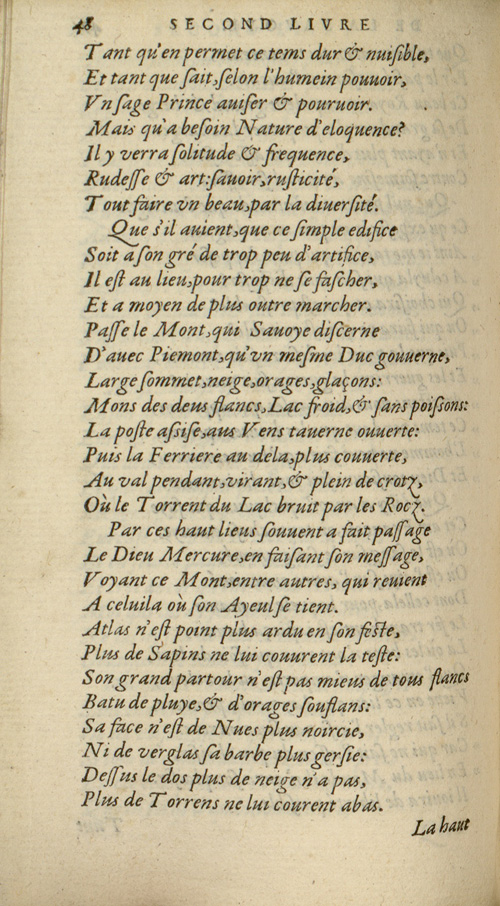 48 SECOND LIVRE
Tant qu'en permet ce tems dur & nuiſible,
Et tant que ſait, ſelon l'humein pouuoir,
Vn ſage Prince auiſer & pouruoir.
Mais qu'a beſoin Nature d'eloquence?
Il y verra ſolitude & frequence,
Rudeſſe & art: ſauoir, ruſticité,
Tout faire vn beau, par la diuerſité.
Que s'il auient, que ce ſimple edifice
Soit a ſon gré de trop peu d'artifice,
Il eſt au lieu, pour trop ne ſe faſcher,
Et a moyen de plus outre marcher.
Paſſe le Mont, qui Sauoye diſcerne
D'auec Piemont, qu'vn meſme Duc gouuerne,
Large ſommet, neige, orages, glaçons:
Mons des deus flancs, Lac froid, & ſans poiſſons:
La poſte aſsiſe, aus Vens tauerne ouuerte:
Puis la Ferriere au dela, plus couuerte,
Au val pendant, virant, & plein de crotz,
Où le Torrent du Lac bruit par les Rocz.
Par ces haut lieus ſouuent a fait paſſage
Le Dieu Mercure, en faiſant ſon meſſage,
Voyant ce Mont, entre autres, qui reuient
A celuila où ſon Ayeul ſe tient.
Atlas n'eſt point plus ardu en ſon feſte,
Plus de Sapins ne lui couurent la teſte:
Son grand partour n'eſt pas mieus de tous flancs
Batu de pluye, & d'orages ſouflans:
Sa face n'eſt de Nues plus noircie,
Ni de verglas ſa barbe plus gerſie:
Deſſus le dos plus de neige n'a pas,
Plus de Torrens ne lui courent abas.
La haut